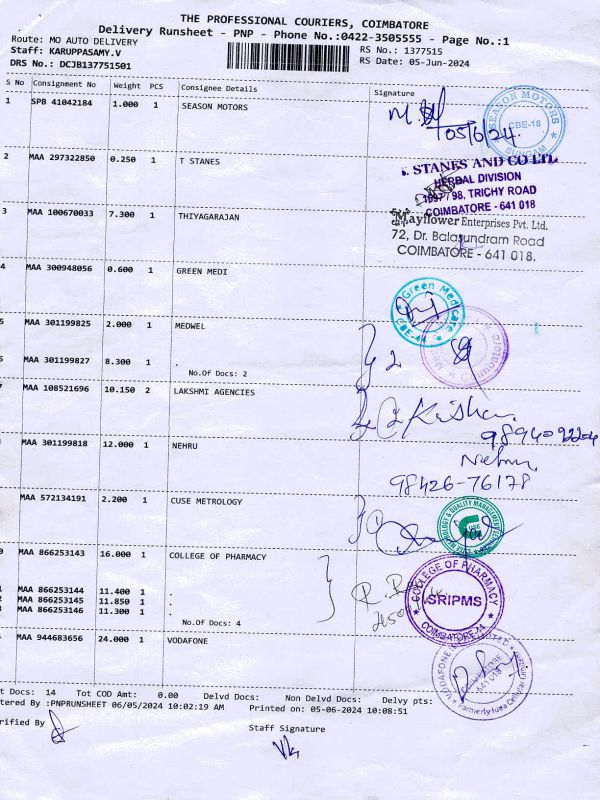 THE PROFESSIONAL COURIERS, COIMBATORE
Delivery Runsheet - PNP - Phone No.:0422-3505555 - Page No.:1
Route: MO AUTO DELIVERY
Staff: KARUPPASAMY.V
RS No.: 1377515
DRS No.: DCJB137751501
RS Date: 05-Jun-2024
S No Consignment No Weight PCS Consignee Details Signature
1 SPB 41042184 1.000 1 SEASON MOTORS
05/6/24
SEASON MOTORS
CBE-18
SUNGAM
2 MAA 297322850 0.250 1 T STANES
STANES AND CO LTD
HERBAL DIVISION
TRICHY ROAD
COIMBATORE - 641 018
3 MAA 100670033 7.300 1 THIYAGARAJAN
Mayflower Enterprises Pvt. Ltd.
72, Dr. Balasundram Road
COIMBATORE - 641 018.
4 MAA 300948056 0.600 1 GREEN MEDI
Green Medicare
CBE-44
5 MAA 301199825 2.000 1 MEDWEL
2
MAA 301199827 8.300 1 .
No.Of Docs: 2
MAA 108521696 10.150 2 LAKSHMI AGENCIES
MAA 301199818 12.000 1 NEHRU
Nehru
98426-76178
MAA 572134191 2.200 1 CUSE METROLOGY
0 MAA 866253143 16.000 1 COLLEGE OF PHARMACY
MAA 866253144 11.400 1 .
MAA 866253145 11.850 1 .
MAA 866253146 11.300 1 .
No.Of Docs: 4
COLLEGE OF PHARMACY
SRIPMS
COIMBATORE
4 MAA 944683656 24.000 1 VODAFONE
VODAFONE
Docs: 14 Tot COD Amt: 0.00 Delvd Docs: Non Delvd Docs: Delvy pts:
tered By :PNPRUNSHEET 06/05/2024 10:02:19 AM Printed on: 05-06-2024 10:08:51
rified By
Staff Signature